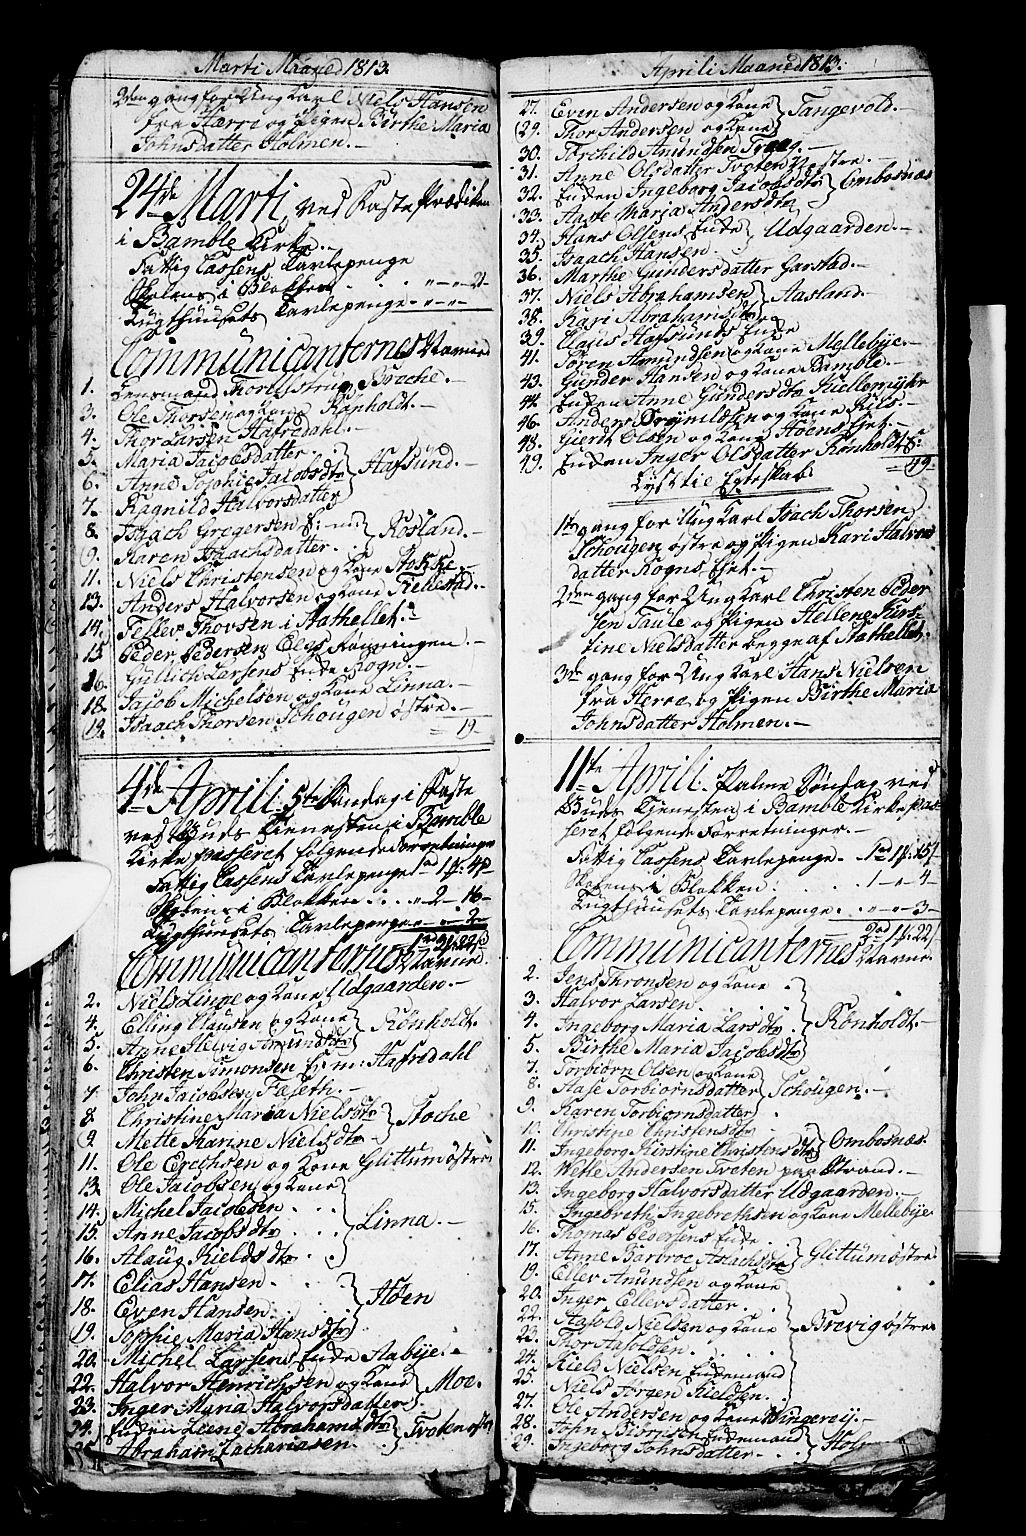 Marti Maaned 1813.
2den gang for Ung Karl Niels Hansen
fra Herre og Pigen Birthe Maria
Johnsdatter Holmen.
24de Marti, ved Faste Prædiken
i Bamble Kirke.
Fattig Cassens Tavlepenge
Skolens i Blokken
Tugthuusets Tavlepenge
Communicanternes Navne
1. Lensmand Stoche.
3. Ole Thorsen og Kone Rønholdt.
4. Thor Larsen Hafredahl.
5. Maria Jacobsdatter
6. Anne Sophie Jacobsdtr Hafsund.
7. Ragnild Halvorsdatter
8. Isaach Gregersen E: m: Rosland.
9. Karen Isaachsdatter
11. Niels Christensen og Kone Stokke
13. Anders Halvorsen og Kone Fillestad.
14. Felker Thorsen i Stathellet.
15. Peder Pedersen
16. Gulich Larsens Enke Rogn.
18. Jacob Michelsen og Kone Linna.
19. Isaach Thorsen Schougen østre.
19
4de Aprili 5te Søndag i Faste
ved Guds Tienesten i Bamble
Kirke passeret følgende Forretninger
Fattig Cassens Tavlepenge
Skolens i Blokken 2 16
Tugthuusets Tavlepenge
Communicanternes Navne.
2. Niels Linne og Kone Udgaarden.
4. Elling Clausen og Kone Rønholdt.
5. Anne Helvig Amundsdtr
6. Christen Simonsen E: m: Hafredahl
7. John Jacobsen Fæseth.
8. Christine Maria Nielsdtr Stoche
9. Mette Karine Nielsdtr
11. Ole Erichsen og Kone Glittum østre
13. Ole Jacobsen og Kone
14. Michel Jacobsen
15. Anne Jacobsdtr Linna.
16. Alaug Kieldsdtr
17. Elias Hansen
18. Even Hansen Aaen
19. Sophie Maria Hansdtr
20. Michel Larsens Enke Aabye.
22. Halvor Henrichsen og Kone Moe.
23. Inger Maria Halvorsdatter
24. Enken Leene Abrahamsdtr Tveten østre
25. Abraham Zachariasen
Aprili Maaned 1813.
27. Even Andersen og Kone Tangevold.
29. Thor Andersen og Kone
30. Torchild Amundsen Traag.
31. Anne Olsdatter Tveten Østre.
32. Enken Ingeborg Jacobsdtr Ombosnæs
33. Aase Maria Andersdtr
34. Hans Olsens Enke Udgaarden.
35. Isaach Hansen
36. Marthe Gundersdatter Garstad.
37. Niels Abrahamsen Aasland.
38. Kari Abrahamsdtr
39. Claus Hafsunds Enke
41. Søren Amundsen og Kone Mellebye.
43. Gunder Hansen og Kone Bamble.
44. Enken Anne Gundersdtr Hullemyhr
46. Anders Brynilsen og Kone Riis.
48. Gierdt Olsen og Kone Aaens Eiet.
49. Enken Inger Olsdatter Rønholdt E:
49
Lyst til Egteskab.
1te gang for Ung Karl Isach Thorsen
Schougen østre og Pigen Kari Halvors
datter Rogns Eiet.
2den gang for Ung Karl Christen Peder
sen Taule og Pigen Hellene Kirs
tine Nielsdatter begge af Stathellet.
3die gang for Ung Karl Hans Nielsen
fra Herre, og Pigen Birthe Maria
Johnsdatter Holmen.
11te Aprili. Palme Søndag ved
Guds Tienesten i Bamble Kirke pas
seret følgende Forretninger.
Fattig Cassens Tavlepenge. 1rd 1 15
Skolens i Blokken: 1 4
Tugthuusets Tavlepenge 3
2rd 1 22
Communicanternes Navne.
2. Jens Thronsen og Kone
3. Halvor Larsen.
4. Ingeborg Maria Larsdtr Rønholdt.
5. Birthe Maria Jacobsdtr
7. Torbiørn Olsen og Kone
8. Aase Torbiornsdatter Schougen.
9. Karen Torbiornsdatter
10. Christine Christensdtr
11. Ingeborg Kirstine Christensdtr Ombosnæs.
12. Wetle Andersen Tveten paa Strand.
13. Ingeborg Halvorsdatter Udgaarden.
15. Ingebreth Ingebrethsen og Kone Mellebye
16. Thomas Pedersens Enke
17. Anne Barbroe Isachsdtr Glittum østre
19. Ellev Amundsen og Kone
20. Inger Ellevsdatter.
22. Aasold Nielsen og Kone Brevig østre
23. Thor Aasoldsen.
24. Kield Nielsen Enkemand
25. Niels Jørgen Kieldsen.
27. Ole Andersen og Kone Wingerøy.
28. John Biørnsen Enkemand
29. Ingeborg Johnsdatter